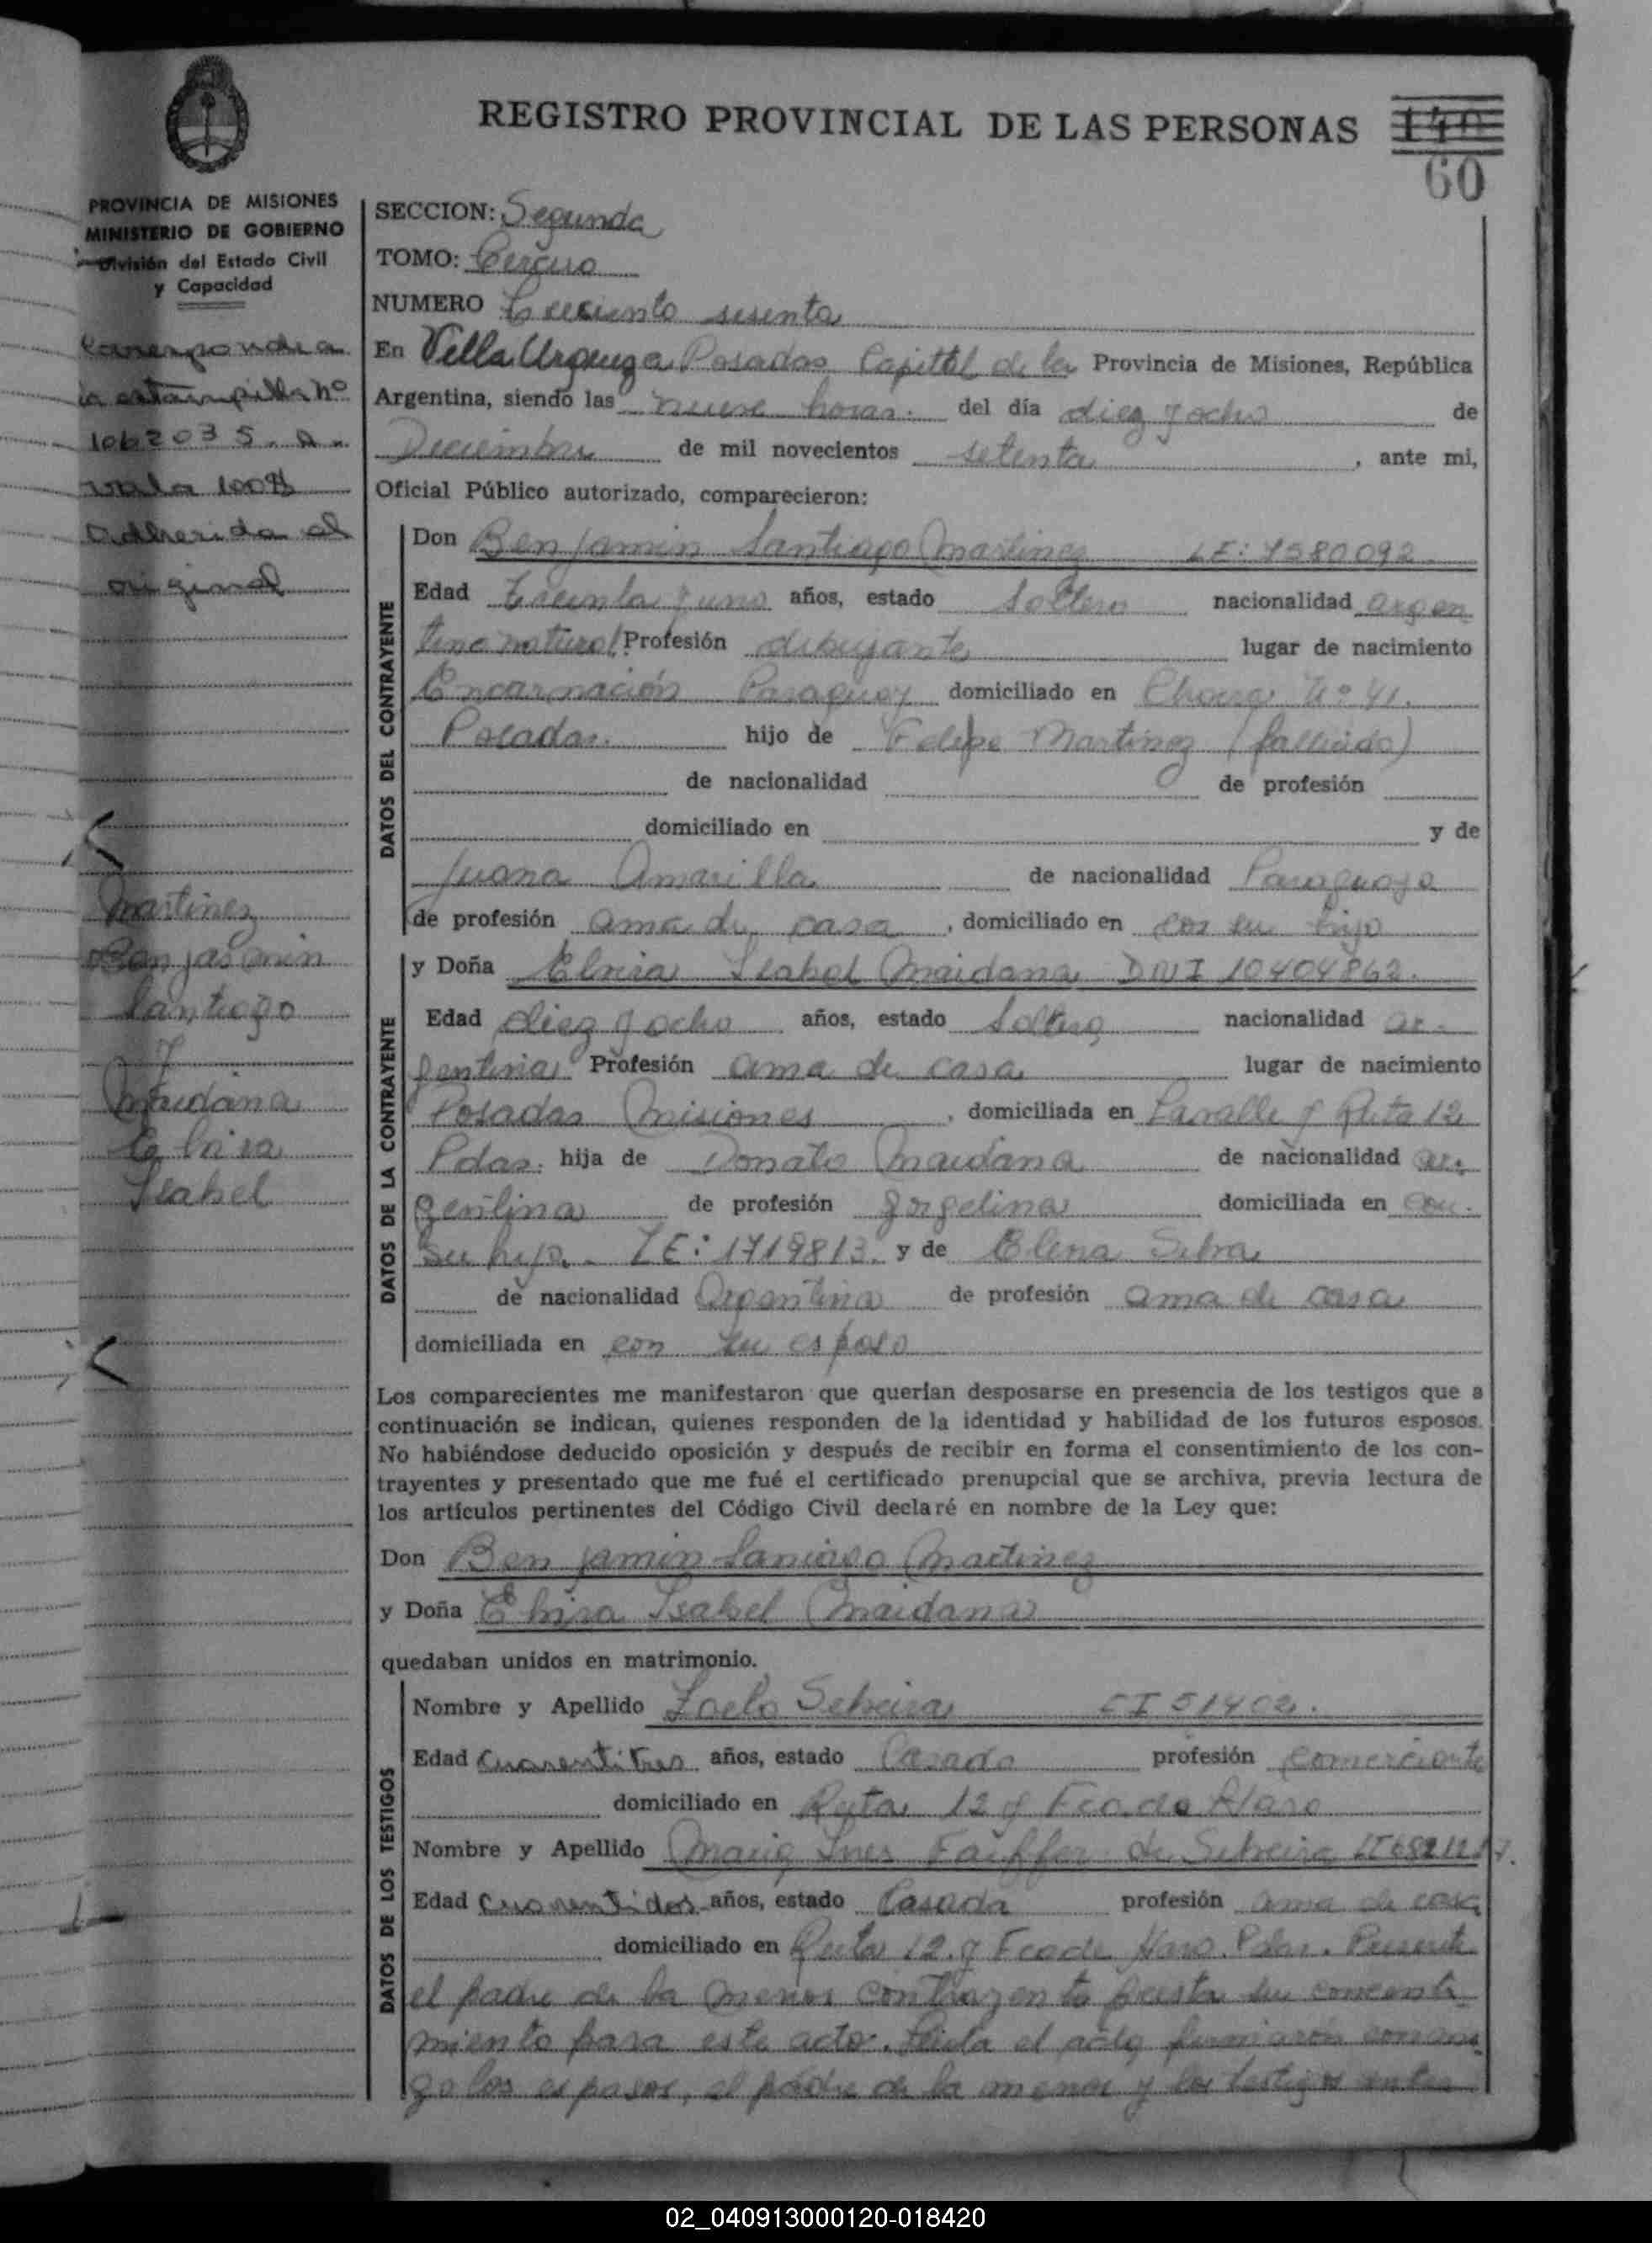 REGISTRO PROVINCIAL DE LAS PERSONAS
140
60
PROVINCIA DE MISIONES
MINISTERIO DE GOBIERNO
División del Estado Civil
y Capacidad
Corresponde a
la estampilla nº
1062035. A.
vala 100$
Adherida al
original
Martinez
Benjasmin
Santiago
y
Maidana
Elvira
Isabel
SECCION: Segunda
TOMO: Tercero
NUMERO Tresciento sesenta
En Villa Urquiza Posadas Capital de la Provincia de Misiones, República
Argentina, siendo las nueve horas. del día diez y ocho de
Diciembre de mil novecientos setenta, ante mi,
Oficial Público autorizado, comparecieron:
DATOS DEL CONTRAYENTE
Don Benjamin Santiago Martinez LE: 7580092.
Edad Treinta y uno años, estado Soltero nacionalidad argen
tino natural. Profesión dibujante lugar de nacimiento
Encarnación Paraguay domiciliado en Nº 41.
Posadas. hijo de Felipe Martinez (fallecido)
de nacionalidad de profesión
domiciliado en y de
Juana Amarilla de nacionalidad Paraguaya
de profesión ama de casa, domiciliado en con su hijo
DATOS DE LA CONTRAYENTE
y Doña Elvira Isabel Maidana DNI 10404862.
Edad diez y ocho años, estado Soltera nacionalidad ar-
gentina Profesión ama de casa lugar de nacimiento
Posadas Misiones, domiciliada en Lavalle y Ruta 12
Pdas. hija de Donato Maidana de nacionalidad ar-
gentina de profesión domiciliada en con
su hija. LE: 1719813. y de Elena Silva
de nacionalidad Argentina de profesión ama de casa
domiciliada en con su esposo
Los comparecientes me manifestaron que querían desposarse en presencia de los testigos que a
continuación se indican, quienes responden de la identidad y habilidad de los futuros esposos.
No habiéndose deducido oposición y después de recibir en forma el consentimiento de los con-
trayentes y presentado que me fué el certificado prenupcial que se archiva, previa lectura de
los artículos pertinentes del Código Civil declaré en nombre de la Ley que:
Don Benjamin Santiago Martinez
y Doña Elvira Isabel Maidana
quedaban unidos en matrimonio.
DATOS DE LOS TESTIGOS
Nombre y Apellido Zoelo Silveira CI 51402.
Edad Cuarentitres años, estado Casado profesión comerciante
domiciliado en Ruta 12 y Fco. de Haro
Nombre y Apellido Maria Ines de Silveira
Edad Cuarentidos años, estado Casada profesión ama de casa
domiciliado en Ruta 12. y Fco de Haro. Pdas. Presente
el padre de la menor contrayente presta su concenti
miento para este acto. Leida el acta firmaron conmi
go los esposos, el padre de la menor y los testigos antes
02_040913000120-018420